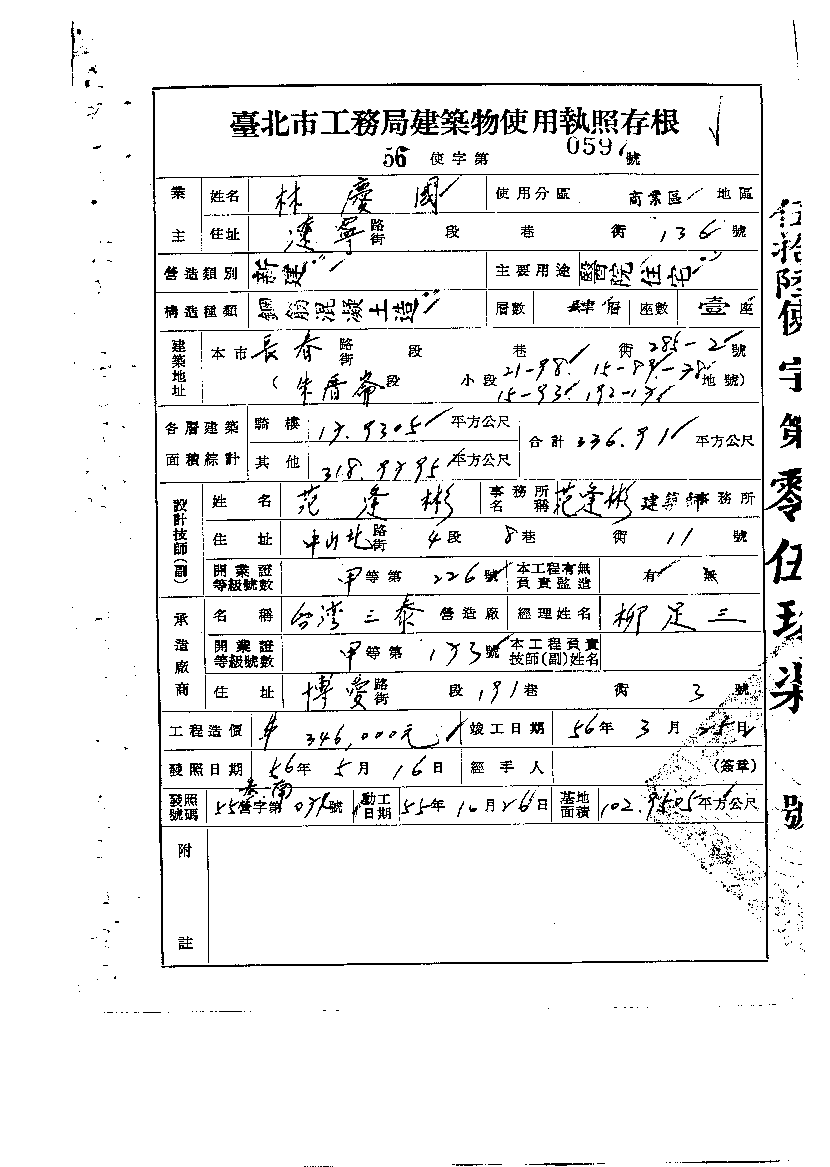 臺北市工務局建築物使用執照存根
56 使字第 0597 號
業主 姓名 林慶國 使用分區 商業區 地區
住址 遼寧 路街 段 巷 衖 136 號
營造類別 新建 主要用途 醫院住宅
構造種類 鋼筋混凝土造 層數 肆層 座數 壹座
建築地址 本市 長春 路街 段 巷 衖 285-2 號
(朱厝崙段 小段 21-98. 15-89-78 15-93. 192-17 地號)
各層建築面積綜計 騎樓 17.9305 平方公尺 合計 336.91 平方公尺
其他 318.9795 平方公尺
設計技師(副) 姓名 范逢彬 事務所名稱 范逢彬建築師事務所
住址 中山北 路街 4段 8巷 衖 11 號
開業證等級號數 甲等第 226 號 本工程有無負責監造 有 無
承造廠商 名稱 台灣三泰營造廠 經理姓名 柳足三
開業證等級號數 甲等第 173 號 本工程負責技師(副)姓名
住址 博愛 路街 段 191巷 衖 3 號
工程造價 346,000元 竣工日期 56年3月25日
發照日期 56年5月16日 經手人 (簽章)
發照號碼 55營字第 號 動工日期 55年10月26日 基地面積 102.9505平方公尺
附註
伍拾陸使字第零伍玖柒號